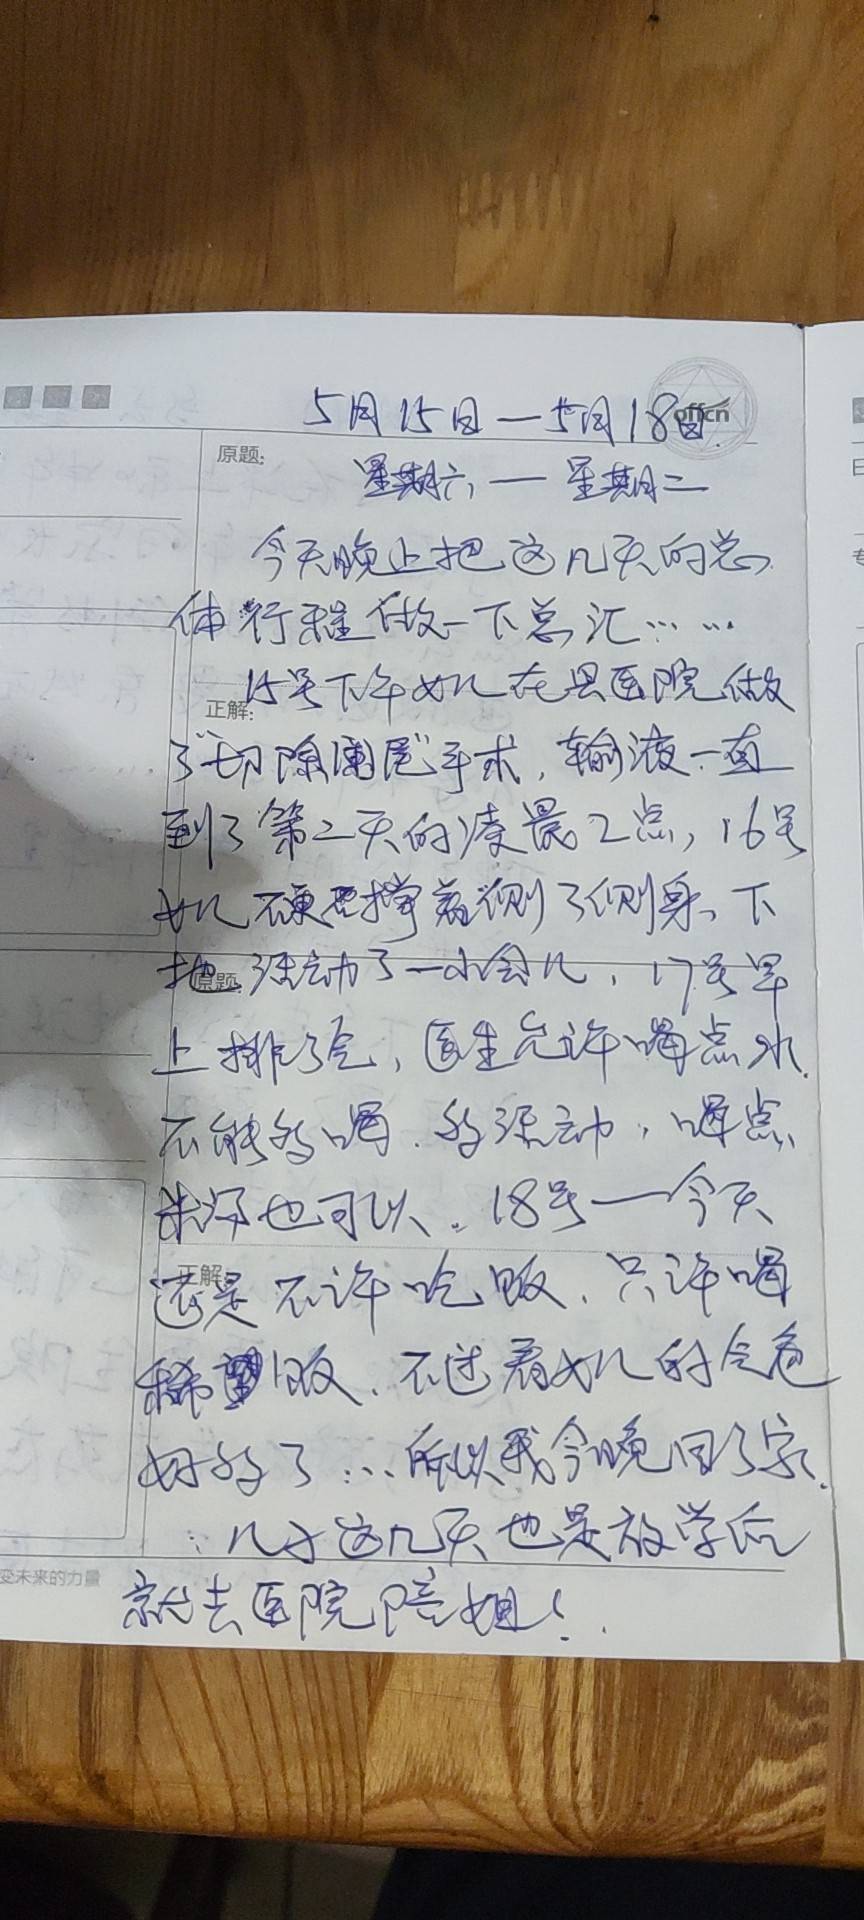 5月15日—5月18日.
offcn
原题:
星期六 — 星期二
今天晚上把这几天的总
体行程做一下总汇……
15号下午女儿在县医院做
正解:
了"切除阑尾"手术，输液一直
到了第二天的凌晨2点，16号
女儿硬撑着侧了侧身、下
地活动了一小会儿，17号早
原题:
上排了气，医生允许喝点水.
不能多喝.多活动，喝点
米汤也可以。18号——今天
正解:
还是不许吃饭、只许喝
稀饭、不过看女儿的气色
好多了…所以我今晚回了家.
儿子这几天也是放学后
变未来的力量
就去医院陪姐!.